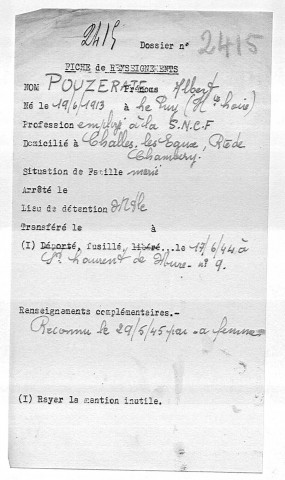 2415 Dossier n° 2415
FICHE de RENSEIGNEMENTS
NOM POUZERATE Prénoms Albert
Né le 19/6/1913 à Le Puy (Hte Loire)
Profession employé à la S.N.C.F
Domicilié à Challes, les Eaux, Rte de
Chambéry.
Situation de Famille marié
Arrêté le
Lieu de détention Mtle
Transféré le à
(I) Déporté, fusillé, libéré...le 17/6/44 à
St Laurent de Mure - n° 9.
Renseignements complémentaires.-
Reconnu le 29/5/45 par sa femme
(I) Rayer la mention inutile.